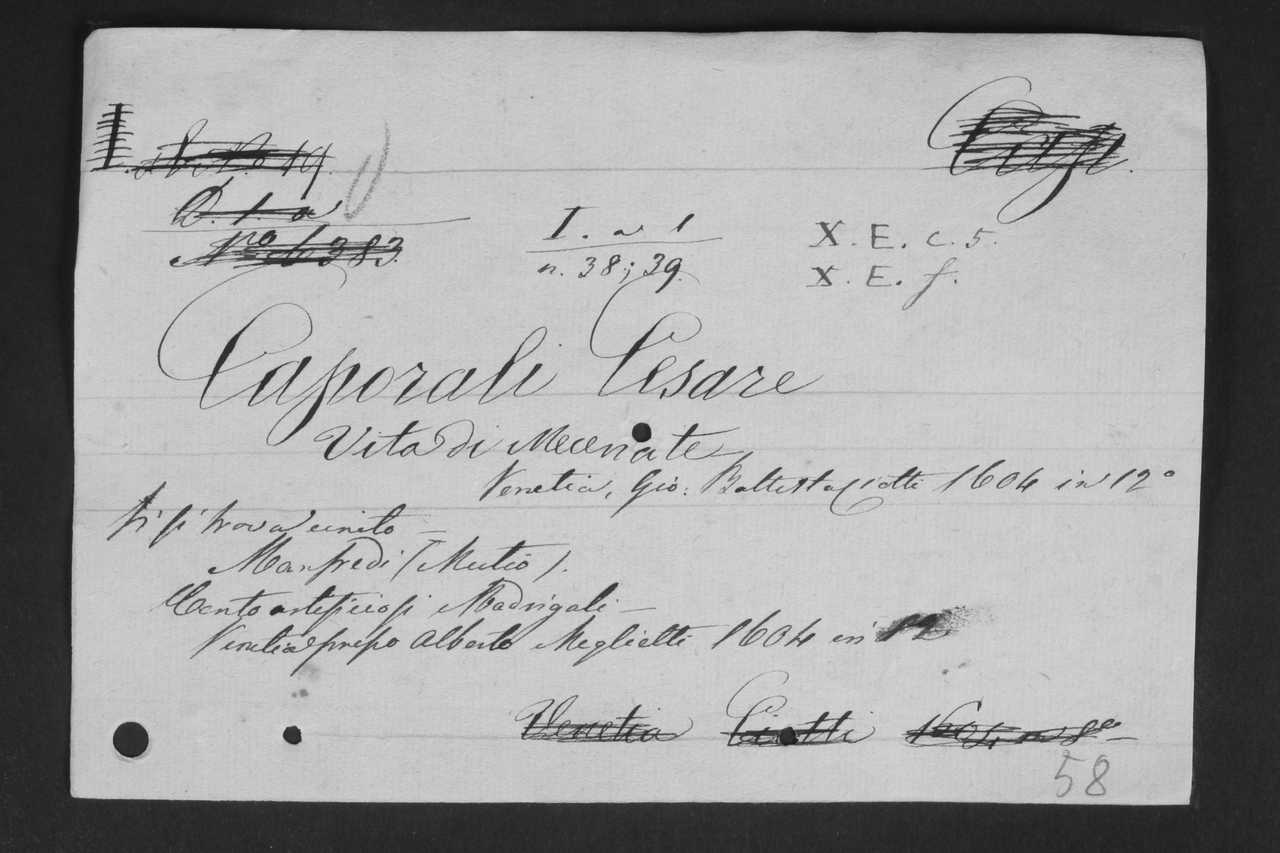 19.
D. 1. a
Nro 6383.
I. a 1
n. 38; 39.
X. E. c. 5.
X. E. f.
Caporali Cesare
Vita di Mecenate
Venetia, Gio: Battista Ciotti 1604 in 12°
si trova unito —
Manfredi (Mutio).
Cento artificiosi Madrigali —
Venetia presso Alberto Meglietti 1604 in 12
Venetia Ciotti 1604 in 8°
58